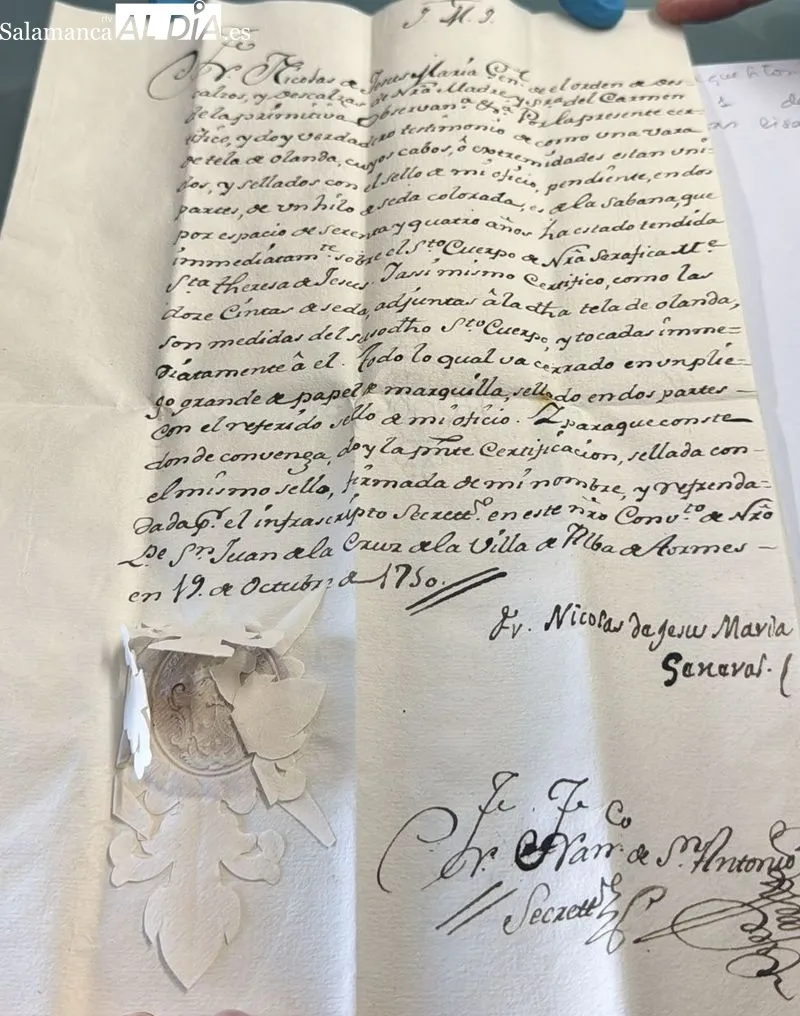 Salamanca rtv ALDÍA.es
J. M. J.
Fr. Nicolas de Jesus Maria Gen.l de el orden de Des=
calzos, y Descalzas de Nrã Madre, y Srã del Carmen
de la primitiva observan.a &.a Por la presente cer=
tifico, y doy verdadero testimonio de como una vara
de tela de olanda, cuyos cabos, ô extremidades estan uni=
dos, y sellados con el sello de mi oficio, pendiente, en dos
partes, de un hilo de seda colorada, es de la Sabana, que
por espacio de setenta y quatro años ha estado tendida
immediatam.te sobre el S.to Cuerpo de Nrã Serafica M.e
S.ta Theresa de Jesus. Y assi mismo Certifico, como las
doze Cintas de seda, adjuntas â la dha tela de olanda,
son medidas del susodho S.to Cuerpo, y tocadas imme=
diatamente â el. Todo lo qual va cerrado en un plie=
go grande de papel de marquilla, sellado en dos partes
con el referido sello de mi oficio. Y para que conste
donde convenga, doy la pnte Certificacion, sellada con
el mismo sello, firmada de mi nombre, y refrenda=
da p.r el infrascripto Secrett.o en este nrõ Conv.to de Nrõ
P.e S.n Juan de la Cruz de la Villa de Alba de Tormes
en 19. de Octubre de 1750.
Fr. Nicolas de Jesus Maria
General.
Fr. de S.n Antonio
Secrett.o